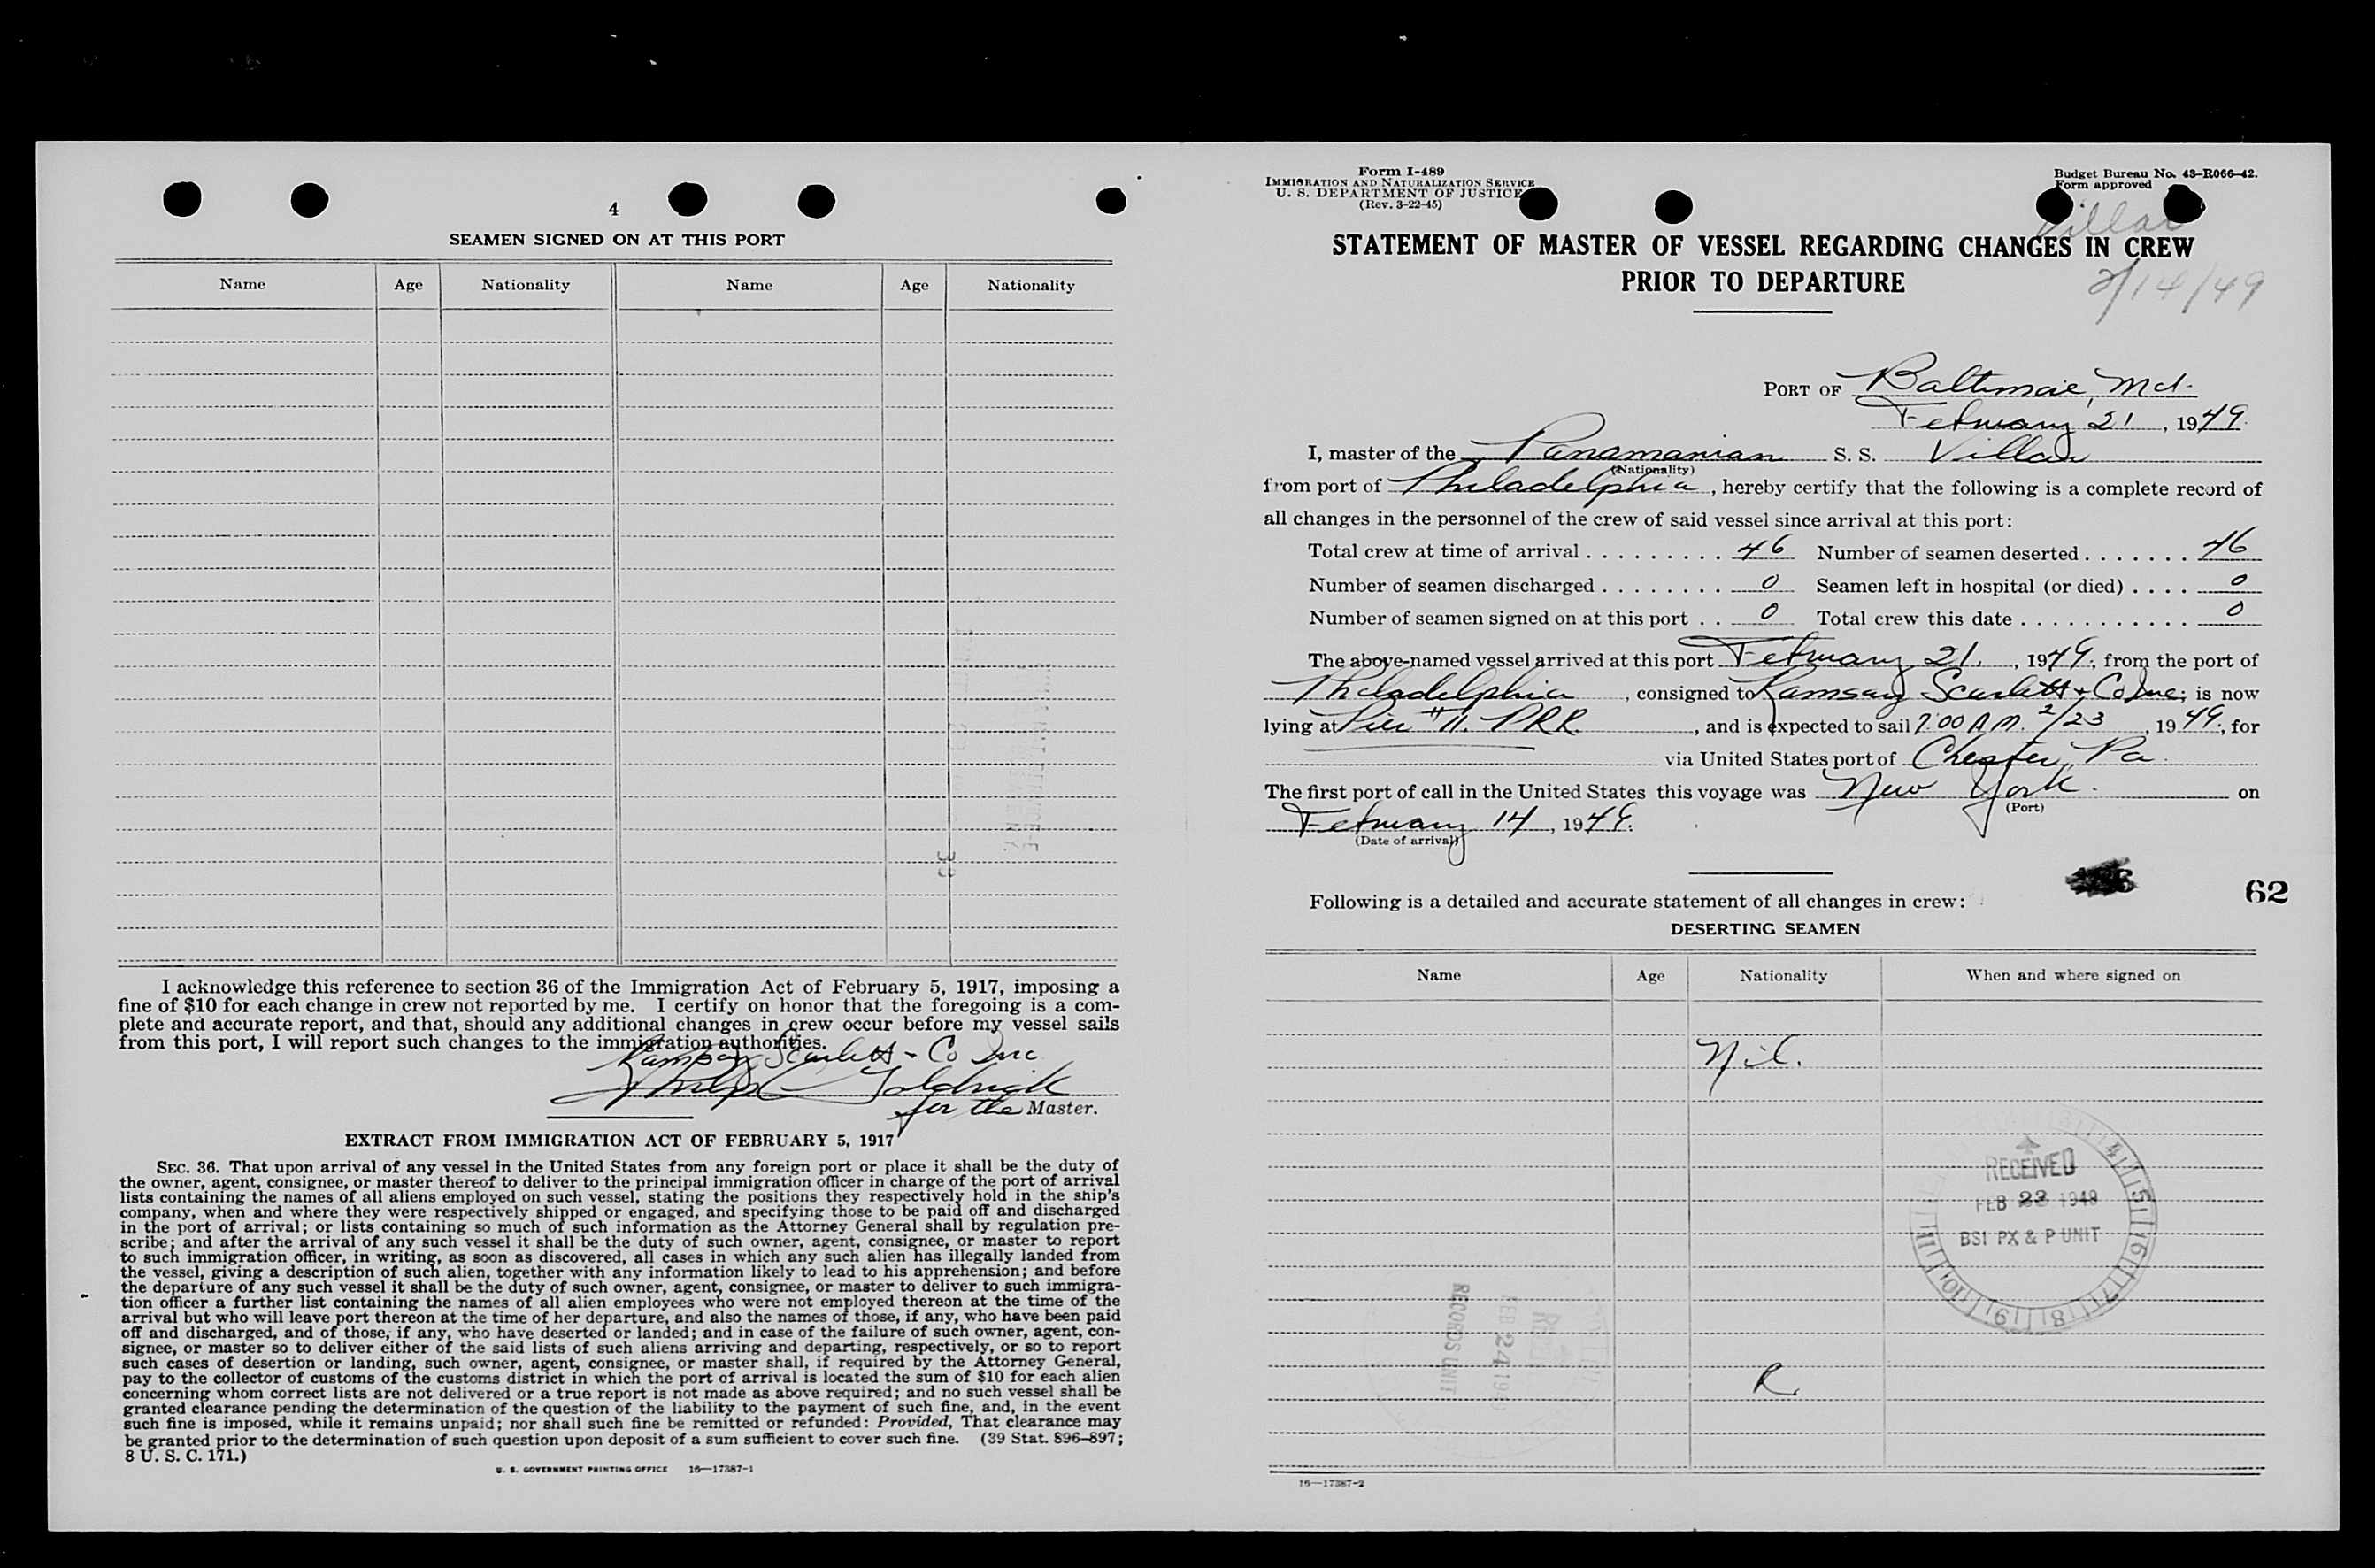 4
SEAMEN SIGNED ON AT THIS PORT
Name Age Nationality Name Age Nationality
I acknowledge this reference to section 36 of the Immigration Act of February 5, 1917, imposing a
fine of $10 for each change in crew not reported by me. I certify on honor that the foregoing is a com-
plete and accurate report, and that, should any additional changes in crew occur before my vessel sails
from this port, I will report such changes to the immigration authorities.
Ramsay Scarlett + Co Inc
for the Master.
EXTRACT FROM IMMIGRATION ACT OF FEBRUARY 5, 1917
SEC. 36. That upon arrival of any vessel in the United States from any foreign port or place it shall be the duty of
the owner, agent, consignee, or master thereof to deliver to the principal immigration officer in charge of the port of arrival
lists containing the names of all aliens employed on such vessel, stating the positions they respectively hold in the ship's
company, when and where they were respectively shipped or engaged, and specifying those to be paid off and discharged
in the port of arrival; or lists containing so much of such information as the Attorney General shall by regulation pre-
scribe; and after the arrival of any such vessel it shall be the duty of such owner, agent, consignee, or master to report
to such immigration officer, in writing, as soon as discovered, all cases in which any such alien has illegally landed from
the vessel, giving a description of such alien, together with any information likely to lead to his apprehension; and before
the departure of any such vessel it shall be the duty of such owner, agent, consignee, or master to deliver to such immigra-
tion officer a further list containing the names of all alien employees who were not employed thereon at the time of the
arrival but who will leave port thereon at the time of her departure, and also the names of those, if any, who have been paid
off and discharged, and of those, if any, who have deserted or landed; and in case of the failure of such owner, agent, con-
signee, or master so to deliver either of the said lists of such aliens arriving and departing, respectively, or so to report
such cases of desertion or landing, such owner, agent, consignee, or master shall, if required by the Attorney General,
pay to the collector of customs of the customs district in which the port of arrival is located the sum of $10 for each alien
concerning whom correct lists are not delivered or a true report is not made as above required; and no such vessel shall be
granted clearance pending the determination of the question of the liability to the payment of such fine, and, in the event
such fine is imposed, while it remains unpaid; nor shall such fine be remitted or refunded: Provided, That clearance may
be granted prior to the determination of such question upon deposit of a sum sufficient to cover such fine. (39 Stat. 896–897;
8 U. S. C. 171.)
U. S. GOVERNMENT PRINTING OFFICE 16—17387-1
Form I-489
IMMIGRATION AND NATURALIZATION SERVICE
U. S. DEPARTMENT OF JUSTICE
(Rev. 3-22-45)
Budget Bureau No. 43–R066–42.
Form approved
Villar
STATEMENT OF MASTER OF VESSEL REGARDING CHANGES IN CREW
PRIOR TO DEPARTURE
2/14/49
PORT OF Baltimore, Md.
February 21, 1949.
I, master of the Panamanian S. S. Villar
(Nationality)
from port of Philadelphia, hereby certify that the following is a complete record of
all changes in the personnel of the crew of said vessel since arrival at this port:
Total crew at time of arrival 46 Number of seamen deserted 46
Number of seamen discharged 0 Seamen left in hospital (or died) 0
Number of seamen signed on at this port 0 Total crew this date 0
The above-named vessel arrived at this port February 21, 1949, from the port of
Philadelphia, consigned to Ramsay Scarlett + Co Inc; is now
lying at Pier #11. PRR., and is expected to sail 7:00 A.M. 2/23, 1949, for
via United States port of Chester, Pa.
The first port of call in the United States this voyage was New York. on
(Port)
February 14, 1949.
(Date of arrival)
62
Following is a detailed and accurate statement of all changes in crew:
DESERTING SEAMEN
Name Age Nationality When and where signed on
Nil.
RECEIVED
FEB 23 1949
BSI PX & P UNIT
4 5 6 7 8 9 10 11
RECORDS UNIT
FEB 24 194
R
16—17387-2